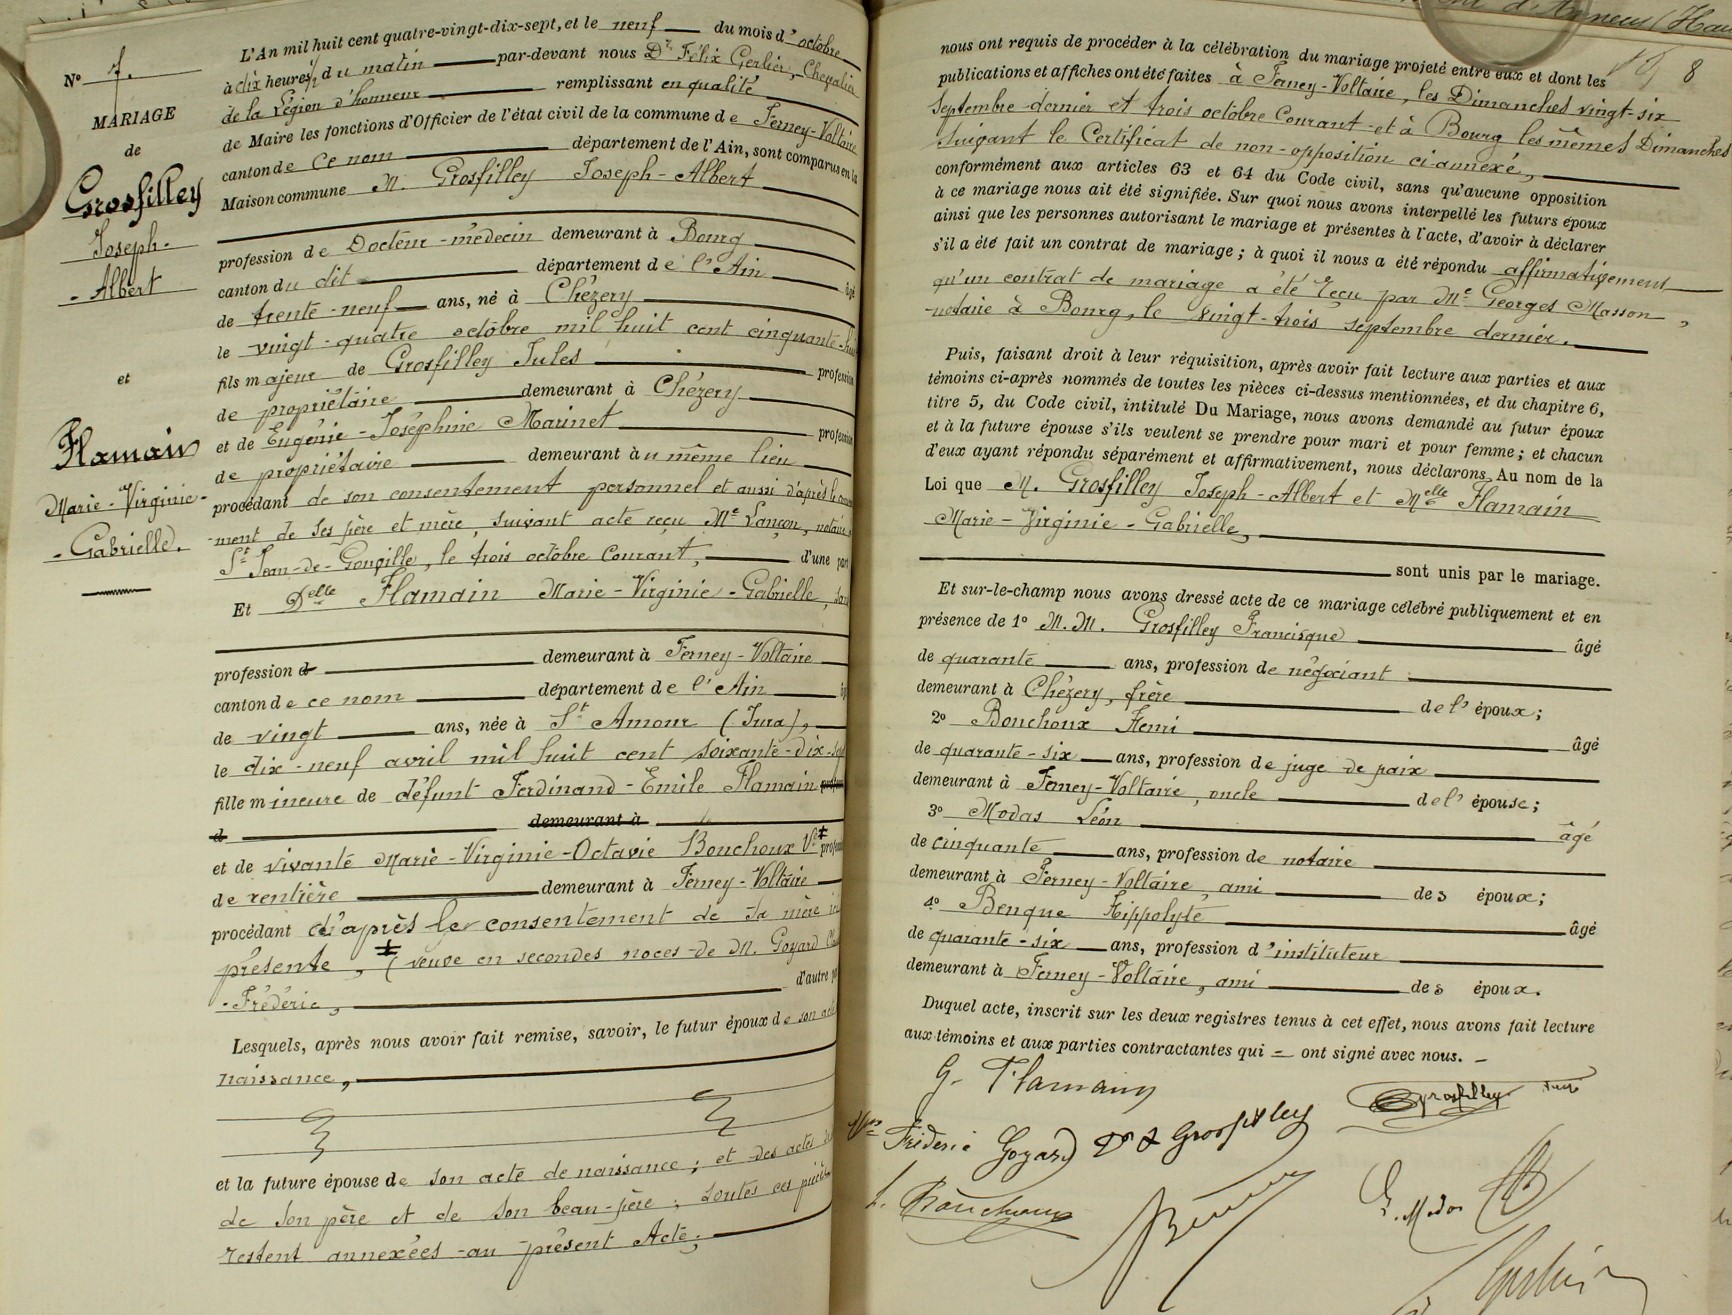 N° 7.
MARIAGE
de
Grosfilley
Joseph-
-Albert
et
Flamain
Marie-Virginie-
-Gabrielle.
L'An mil huit cent quatre-vingt-dix-sept, et le neuf du mois d'octobre
à dix heures ½ du matin par-devant nous Dr. Félix Gerlier, Chevalier
de la Légion d'honneur remplissant en qualité
de Maire les fonctions d'Officier de l'état civil de la commune de Ferney-Voltaire
canton de ce nom département de l'Ain, sont comparus en la
Maison commune M. Grosfilley Joseph-Albert
profession de Docteur-médecin demeurant à Bourg
canton du dit département de l'Ain âgé
de trente-neuf ans, né à Chézery
le vingt-quatre octobre mil huit cent cinquante-huit
fils majeur de Grosfilley Jules profession
de propriétaire demeurant à Chézery
et de Eugénie-Joséphine Marinet profession
de propriétaire demeurant au même lieu
procédant de son consentement personnel et aussi d'après le
-ment de ses père et mère, suivant acte reçu Me Lançon, notaire
St Jean-de-Gonville, le trois octobre courant, d'une part
Et Delle Flamain Marie-Virginie-Gabrielle, sans
profession d demeurant à Ferney-Voltaire
canton de ce nom département de l'Ain
de vingt ans, née à St Amour (Jura),
le dix-neuf avril mil huit cent soixante-dix-sept
fille mineure de défunt Ferdinand-Emile Flamain
d demeurant à
et de vivante Marie-Virginie-Octavie Bouchoux Ve ‡
de rentière demeurant à Ferney-Voltaire
procédant d'après le consentement de sa mère ici
présente, ‡ (veuve en secondes noces de M. Goyard
-Frédéric, d'autre part
Lesquels, après nous avoir fait remise, savoir, le futur époux de son acte
naissance,
et la future épouse de son acte de naissance; et des actes de
de son père et de son beau-père; toutes ces pièces
restent annexées au présent Acte;
d'Annecy (Hau
8
nous ont requis de procéder à la célébration du mariage projeté entre eux et dont les
publications et affiches ont été faites à Ferney-Voltaire, les Dimanches vingt-six
Septembre dernier et trois octobre courant et à Bourg les mêmes Dimanches
suivant le Certificat de non-opposition ci-annexé,
conformément aux articles 63 et 64 du Code civil, sans qu'aucune opposition
à ce mariage nous ait été signifiée. Sur quoi nous avons interpellé les futurs époux
ainsi que les personnes autorisant le mariage et présentes à l'acte, d'avoir à déclarer
s'il a été fait un contrat de mariage; à quoi il nous a été répondu affirmativement
qu'un contrat de mariage a été reçu par Me Georges Masson,
notaire à Bourg, le vingt-trois septembre dernier.
Puis, faisant droit à leur réquisition, après avoir fait lecture aux parties et aux
témoins ci-après nommés de toutes les pièces ci-dessus mentionnées, et du chapitre 6,
titre 5, du Code civil, intitulé Du Mariage, nous avons demandé au futur époux
et à la future épouse s'ils veulent se prendre pour mari et pour femme; et chacun
d'eux ayant répondu séparément et affirmativement, nous déclarons Au nom de la
Loi que M. Grosfilley Joseph-Albert et Melle Flamain
Marie-Virginie-Gabrielle,
sont unis par le mariage.
Et sur-le-champ nous avons dressé acte de ce mariage célébré publiquement et en
présence de 1° M.M. Grosfilley Francisque âgé
de quarante ans, profession de négociant
demeurant à Chézery, frère de l'époux;
2° Bouchoux Henri âgé
de quarante-six ans, profession de juge de paix
demeurant à Ferney-Voltaire, oncle de l'épouse;
3° Modas Léon âgé
de cinquante ans, profession de notaire
demeurant à Ferney-Voltaire, ami des époux;
4° Benque Hippolyte âgé
de quarante-six ans, profession d'instituteur
demeurant à Ferney-Voltaire, ami des époux.
Duquel acte, inscrit sur les deux registres tenus à cet effet, nous avons fait lecture
aux témoins et aux parties contractantes qui = ont signé avec nous.
G. Flamain
Grosfilley
Vve Frédéric Goyard Dr A Grosfilley
H. Bouchoux
L. Modas
Gerlier